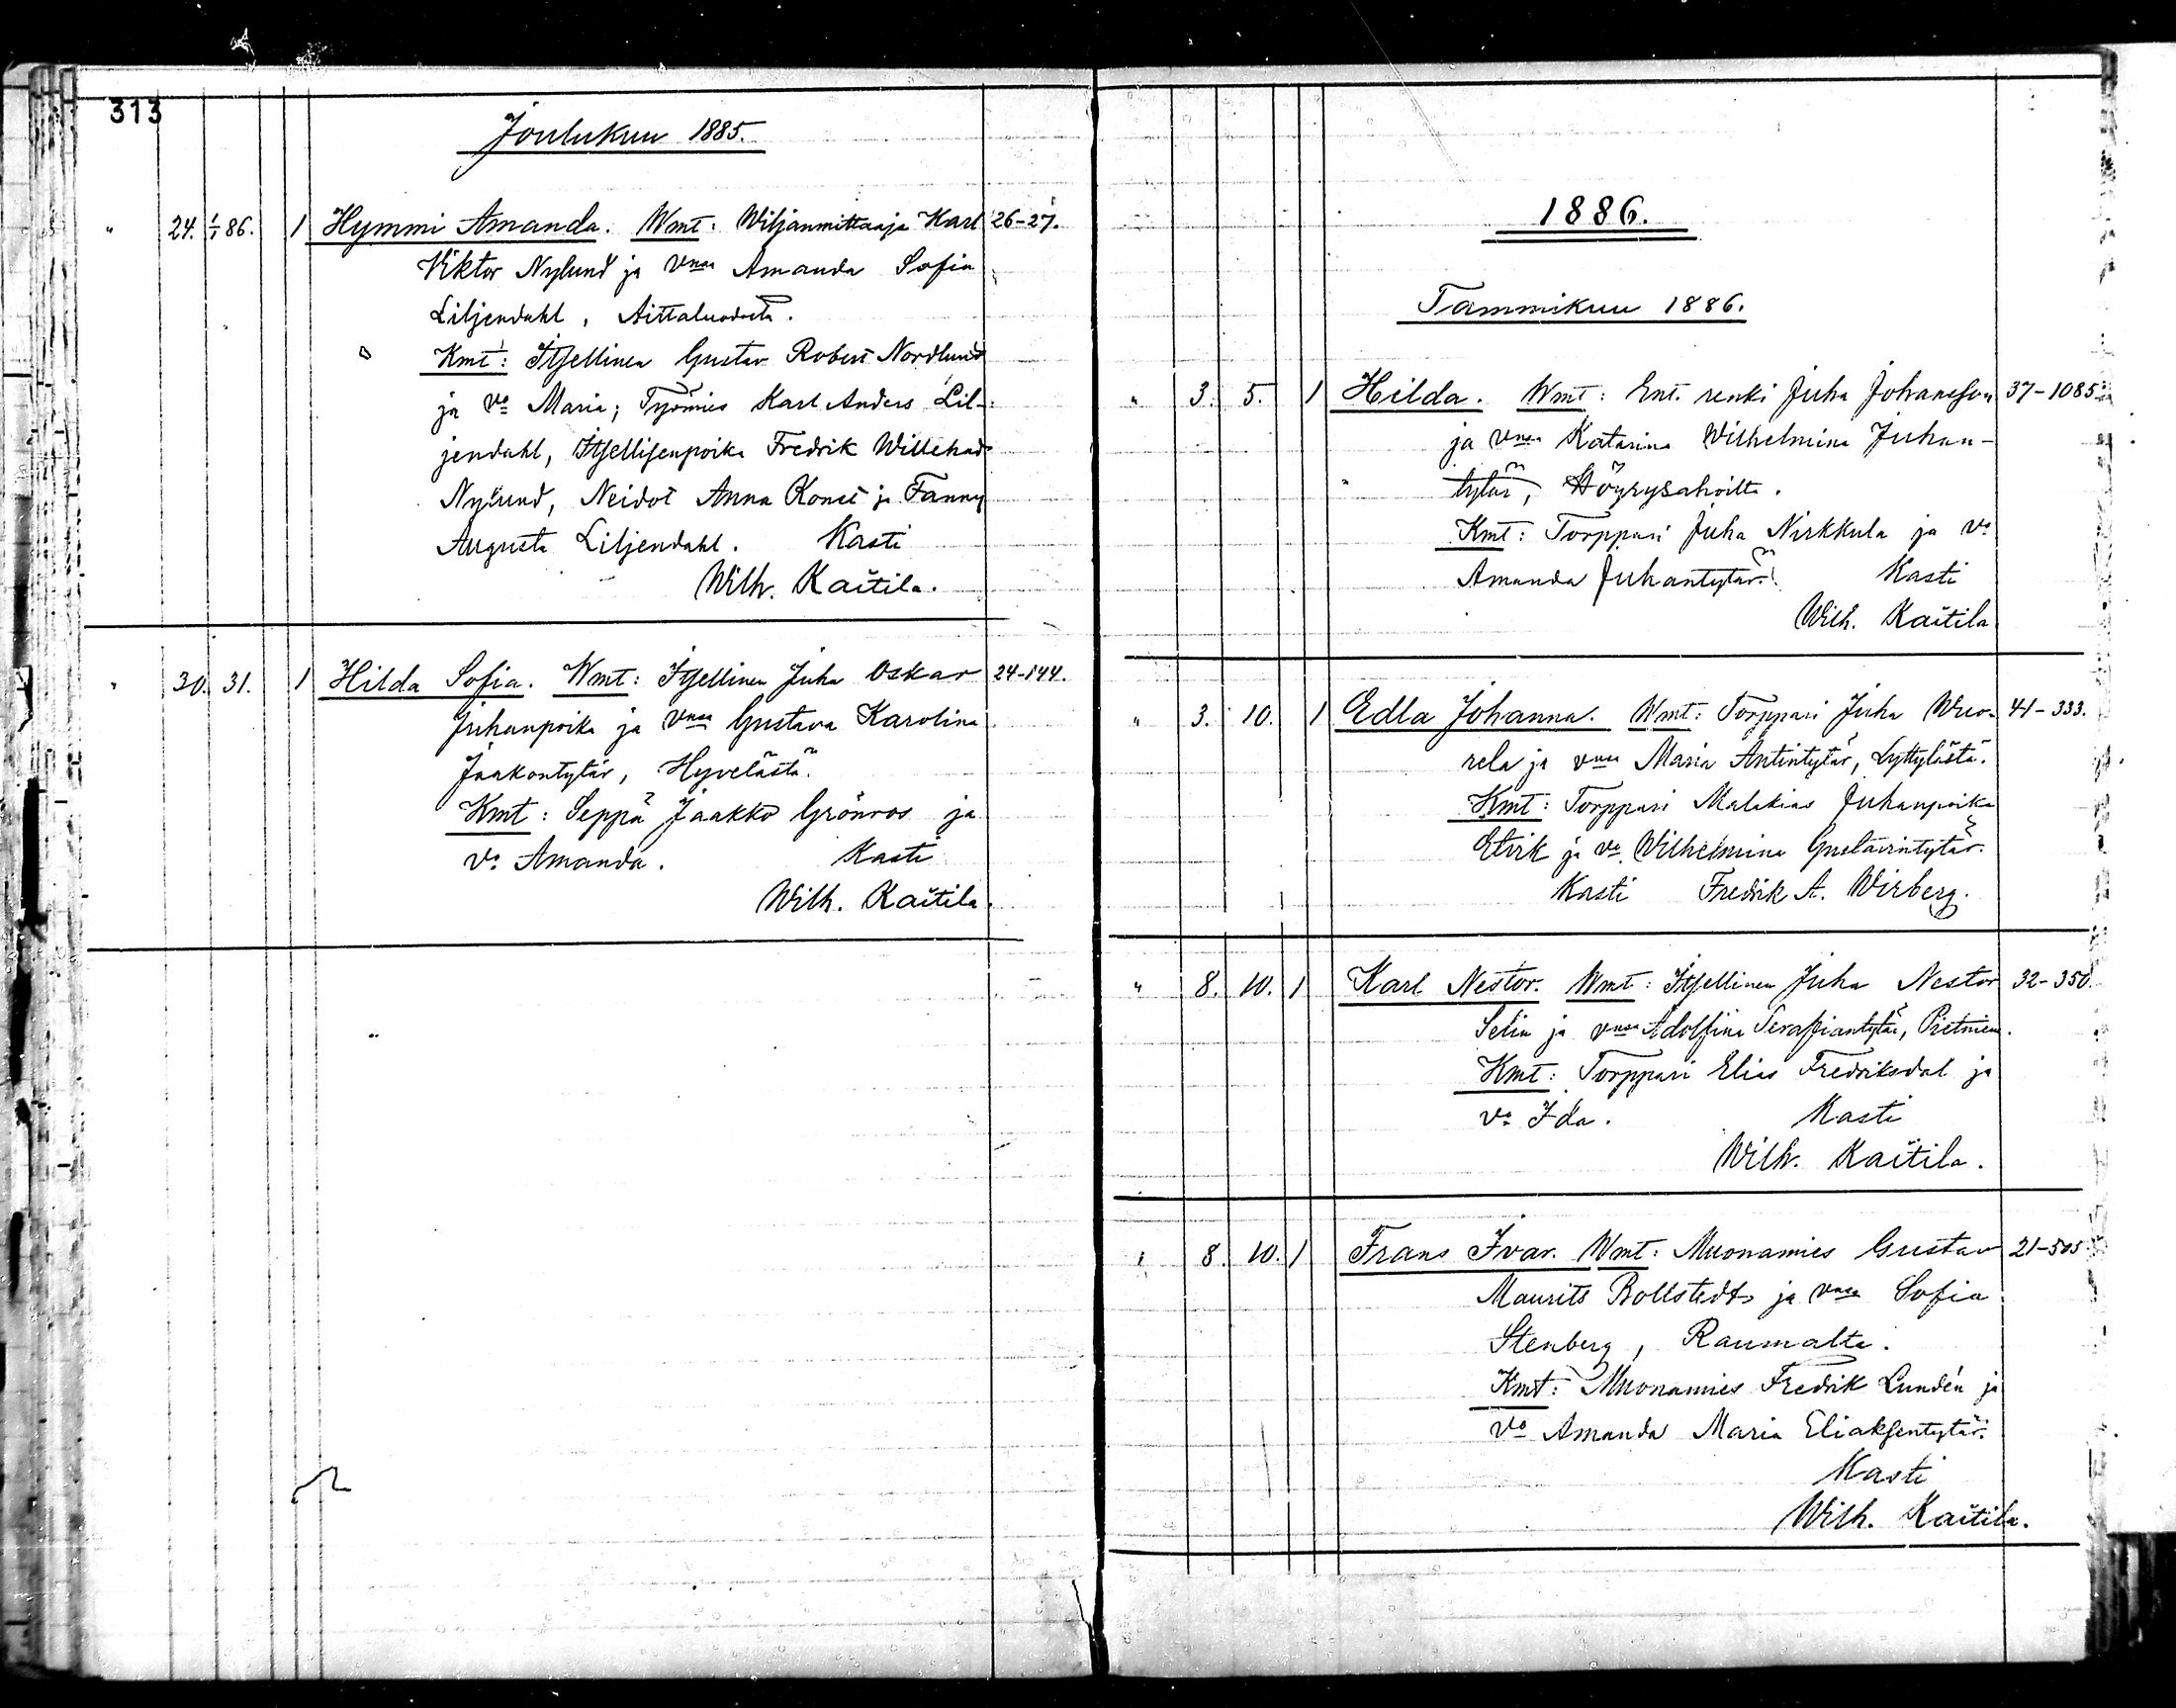 313
Joulukuu 1885.
" 24. 1/1 86. 1 Hymmi Amanda. Wmt: Wiljanmittaaja Karl 26-27.
Viktor Nylund ja vnsa Amanda Sofia
Liljendahl, Aittaluodosta.
Kmt: Itsellinen Gustav Robert Nordlund
ja vo Maria; Työmies Karl Anders Lil-
jendahl, Itsellisenpoika Fredrik Willehad
Nylund, Neidot Anna ja Fanny
Augusta Liljendahl. Kasti
Wilh. Kaitila.
" 30. 31. 1 Hilda Sofia. Wmt: Itsellinen Juha Oskar 24-144.
Juhanpoika ja vnsa Gustava Karolina
Jaakontytär, Hyvelästä.
Kmt: Seppä Jaakko Grönroos ja
vo Amanda. Kasti
Wilh. Kaitila.
1886.
Tammikuu 1886.
" 3. 5. 1 Hilda. Wmt: Ent. renki Juha Johansson 37-1085
ja vnsa Katarina Wilhelmina Juhan-
tytär, Höyrysahoilta.
Kmt: Torppari Juha Nirkkula ja vo
Amanda Juhantytär. Kasti
Wilh. Kaitila
" 3. 10. 1 Edla Johanna. Wmt: Torppari Juha Wuo- 41-333.
rela ja vnsa Maria Antintytär, Lyttylästä.
Kmt: Torppari Malakias Juhanpoika
ja vo Wilhelmina Gustavintytär.
Kasti Fredrik A. Wirberg.
" 8. 10. 1 Karl Nestor. Wmt: Itsellinen Juha Nestor 32-350.
Selin ja vnsa Adolfina Serafiantytär, Pietniem.
Kmt: Torppari Elias Fredriksdal ja
vo Ida. Kasti
Wilh. Kaitila.
" 8. 10. 1 Frans Ivar. Wmt: Muonamies Gustav 21-505
Maurits Bollstedt ja vnsa Sofia
Stenberg, Raumalta.
Kmt: Muonamies Fredrik Lundén ja
vo Amanda Maria Eliaksentytär.
Kasti
Wilh. Kaitila.